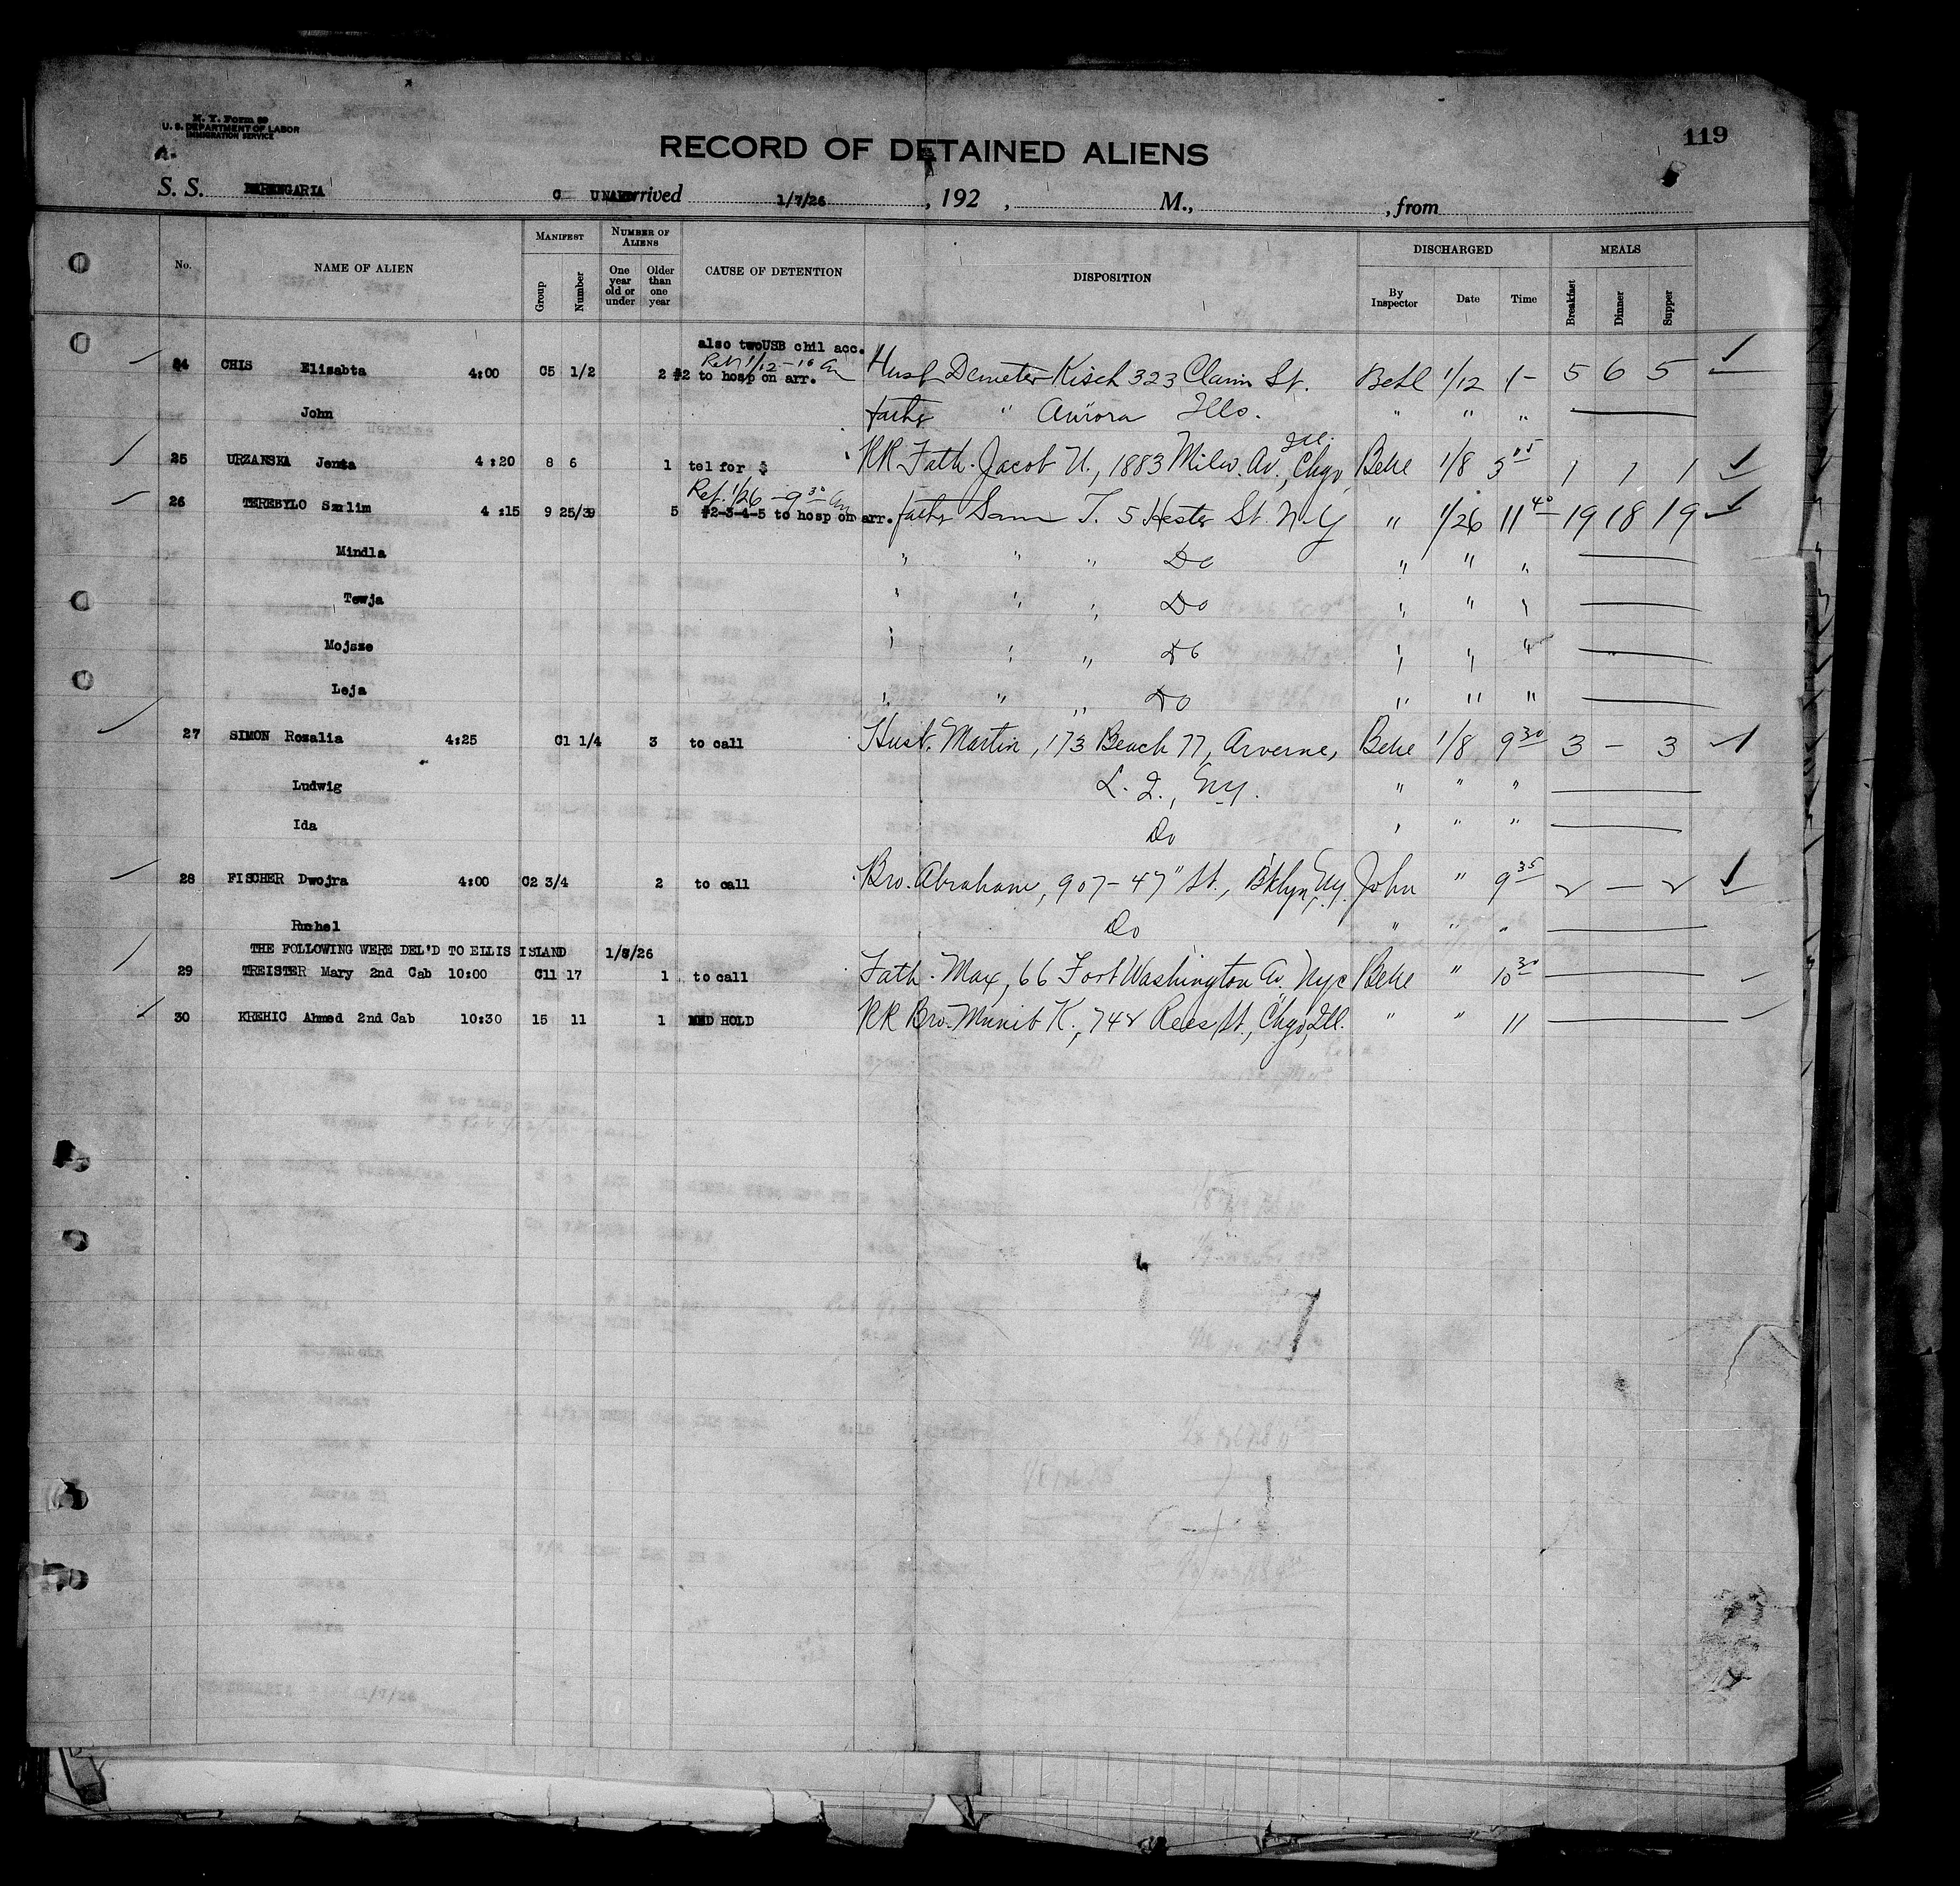 N. Y. Form 89
U. S. DEPARTMENT OF LABOR
IMMIGRATION SERVICE
119
RECORD OF DETAINED ALIENS
S. S. BERENGARIA CUNARD Arrived 1/7/26, 192 , M., , from
No. NAME OF ALIEN MANIFEST Group Number NUMBER OF ALIENS One year old or under Older than one year CAUSE OF DETENTION DISPOSITION DISCHARGED By Inspector Date Time MEALS Breakfast Dinner Supper
also two USB chil acc.
Ret 1/12 - 10 Am
24 CHIS Elisabta 4:00 C5 1/2 2 #2 to hosp on arr. Husb Demeter Kisch 323 Claim St. 1/12 1- 5 6 5
John father " Aurora Ills. " " "
25 URZANSKA Jenta 4:20 8 6 1 tel for $ RR Fath. Jacob U., 1883 Milw. Av., Chgo, Ill. Behe 1/8 3 15 1 1 1
Ret. 1/26 - 9 30 Am
26 TEREBYLO Szulim 4:15 9 25/39 5 #2-3-4-5 to hosp on arr. father Sam T. 5 Hester St. N-Y " 1/26 11 40 19 18 19
Mindla " " " Do " " "
Tewja " " " Do " " "
Mojsze " " " Do " " "
Leja " " " Do " " "
27 SIMON Rozalia 4:25 C1 1/4 3 to call Husb. Martin, 173 Beach 77, Arverne, Behe 1/8 9 30 3 - 3
Ludwig L. I., N.Y. " " "
Ida Do " " "
28 FISCHER Dwojra 4:00 C2 3/4 2 to call Bro. Abraham, 907 - 47" St., B'klyn, N.Y. John " 9 35 2 - 2
Ruchel Do " " "
THE FOLLOWING WERE DEL'D TO ELLIS ISLAND 1/8/26
29 TREISTER Mary 2nd Cab 10:00 C11 17 1 to call Fath. Max, 66 Fort Washington Av. Nyc Behe " 10 30
30 KREHIC Ahmed 2nd Cab 10:30 15 11 1 MED HOLD RR Bro. Munib K., 742 Rees St., Chgo, Ill. " " 11